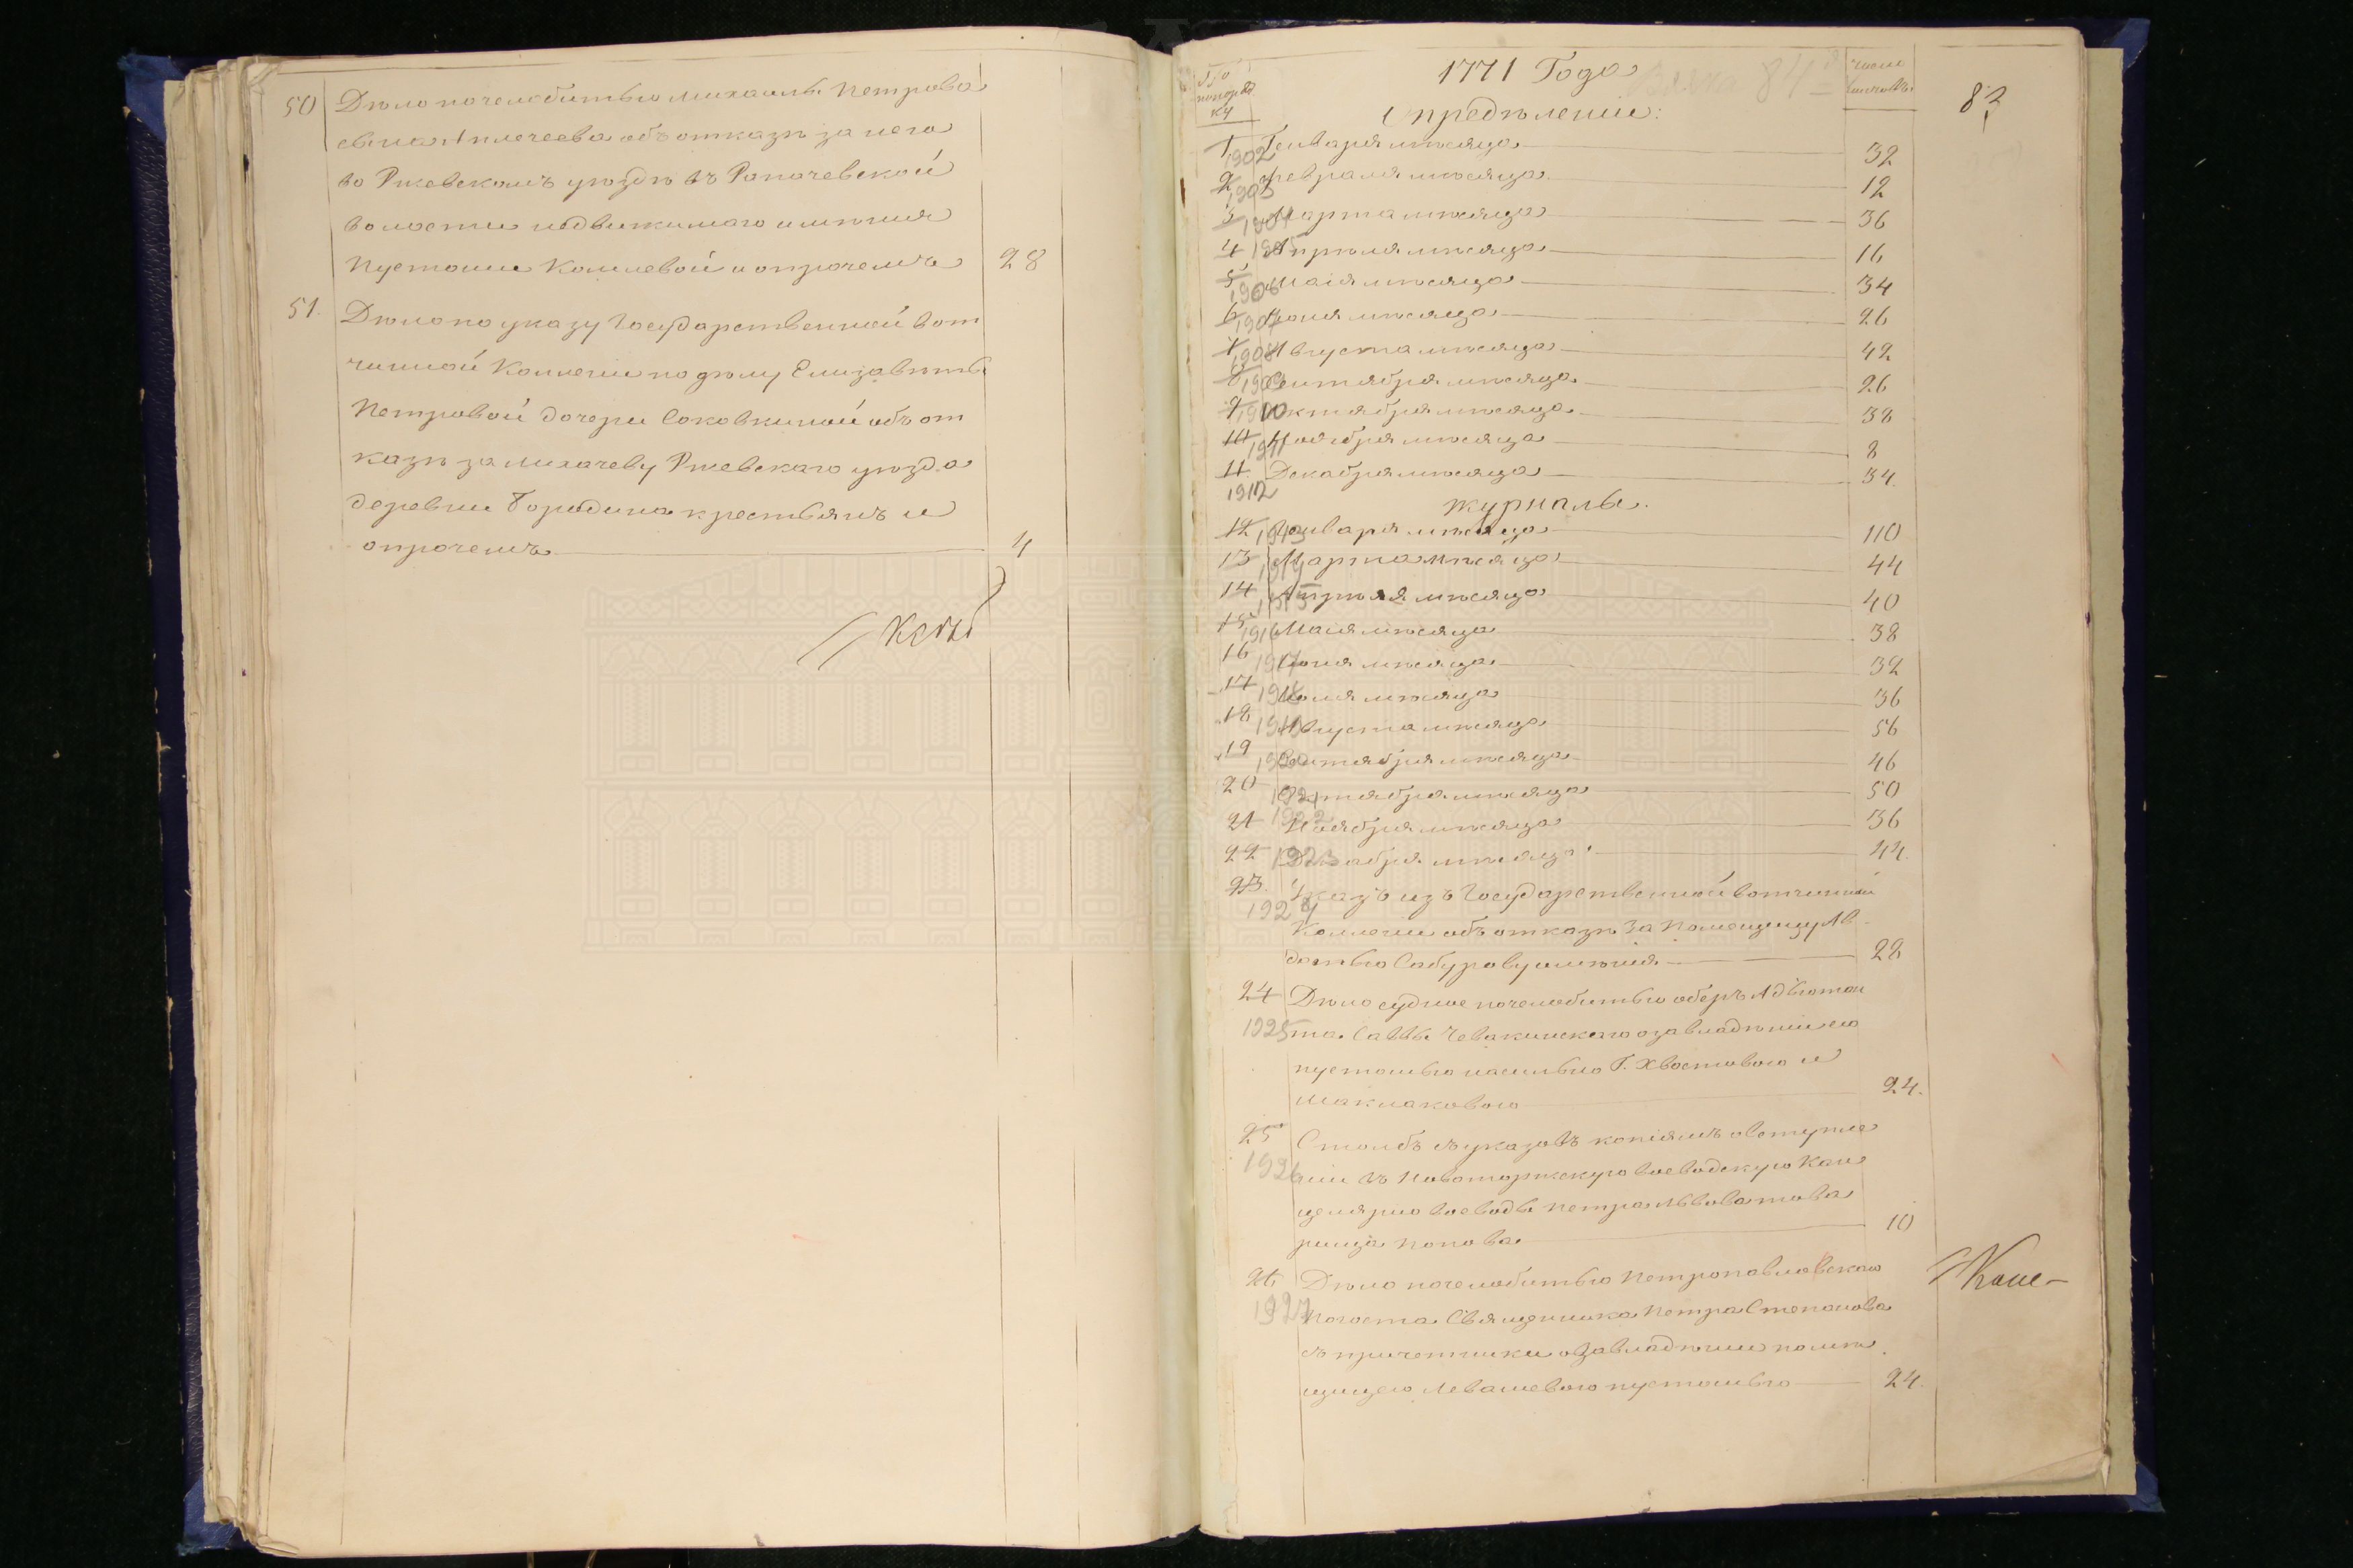 50 Дѣло почелобитью михаилы Петрова
сына Аплечеева объ отказѣ за него
во Ржевскомъ уѣздѣ въ Рапачевской
волости недвижимаго имѣния
Пустоши Комлевой и опрочемъ 28
51. Дѣло по указу Государственной вот
чинной Колегии по дѣлу Елизаветы
Петровой дочери Соковниной объ от
казѣ за Лихачеву Ржевскаго уѣзда
деревни Бородина крестьянъ и
опрочемъ 4
1771 Года
83
№
попоряд
ку
число
листовъ
Опредѣлении:
1 1902 Генваря мѣсяца 32
2 1903 Февраля мѣсяца 12
3 1904 Марта мѣсяца 36
4 1905 Апрѣля мѣсяца 16
5 1906 Маія мѣсяца 34
6 1907 Июня мѣсяца 26
7 1908 Августа мѣсяца 42
8 1909 Сентября мѣсяца 26
9 1910 Октября мѣсяца 38
10 1911 Ноября мѣсяца 8
11 1912 Декабря мѣсяца 34.
Журналы.
12 1913 Генваря мѣсяца 110
13 1914 Марта мѣсяца 44
14 1915 Апрѣля мѣсяца 40
15 1916 Маія мѣсяца 38
16 1917 Июня мѣсяца 32
17 1918 Июля мѣсяца 36
18 1919 Августа мѣсяца 56
19 1920 Сентября мѣсяца 46
20 1921 Октября мѣсяца 50
21 1922 Ноября мѣсяца 36
22 1923 Декабря мѣсяца 44.
23. Указъ изъ Государственной вотчинной
1924 Коллегии объ отказѣ за Помещицу Ав
дотью Сабурову имѣния 22
24 Дѣло судное почелобитью оберъ Адъютан
1925 та Саввы Чевакинскаго озавладѣнии его
пустошью насильно Г. Хвостовою и
Маклаковою 24.
25 Столбъ съ указовъ копіямъ овступле
1926 нии въ Новоторжскую воеводскую Кан
целярию воеводы Петра Львова това
рища Попова 10
26 Дѣло почелобитью Петропавловскаго
1927 Погоста Священника Петра Степанова
съ причетники озавладѣнии помѣ
щицею Левашевою пустошью 24.